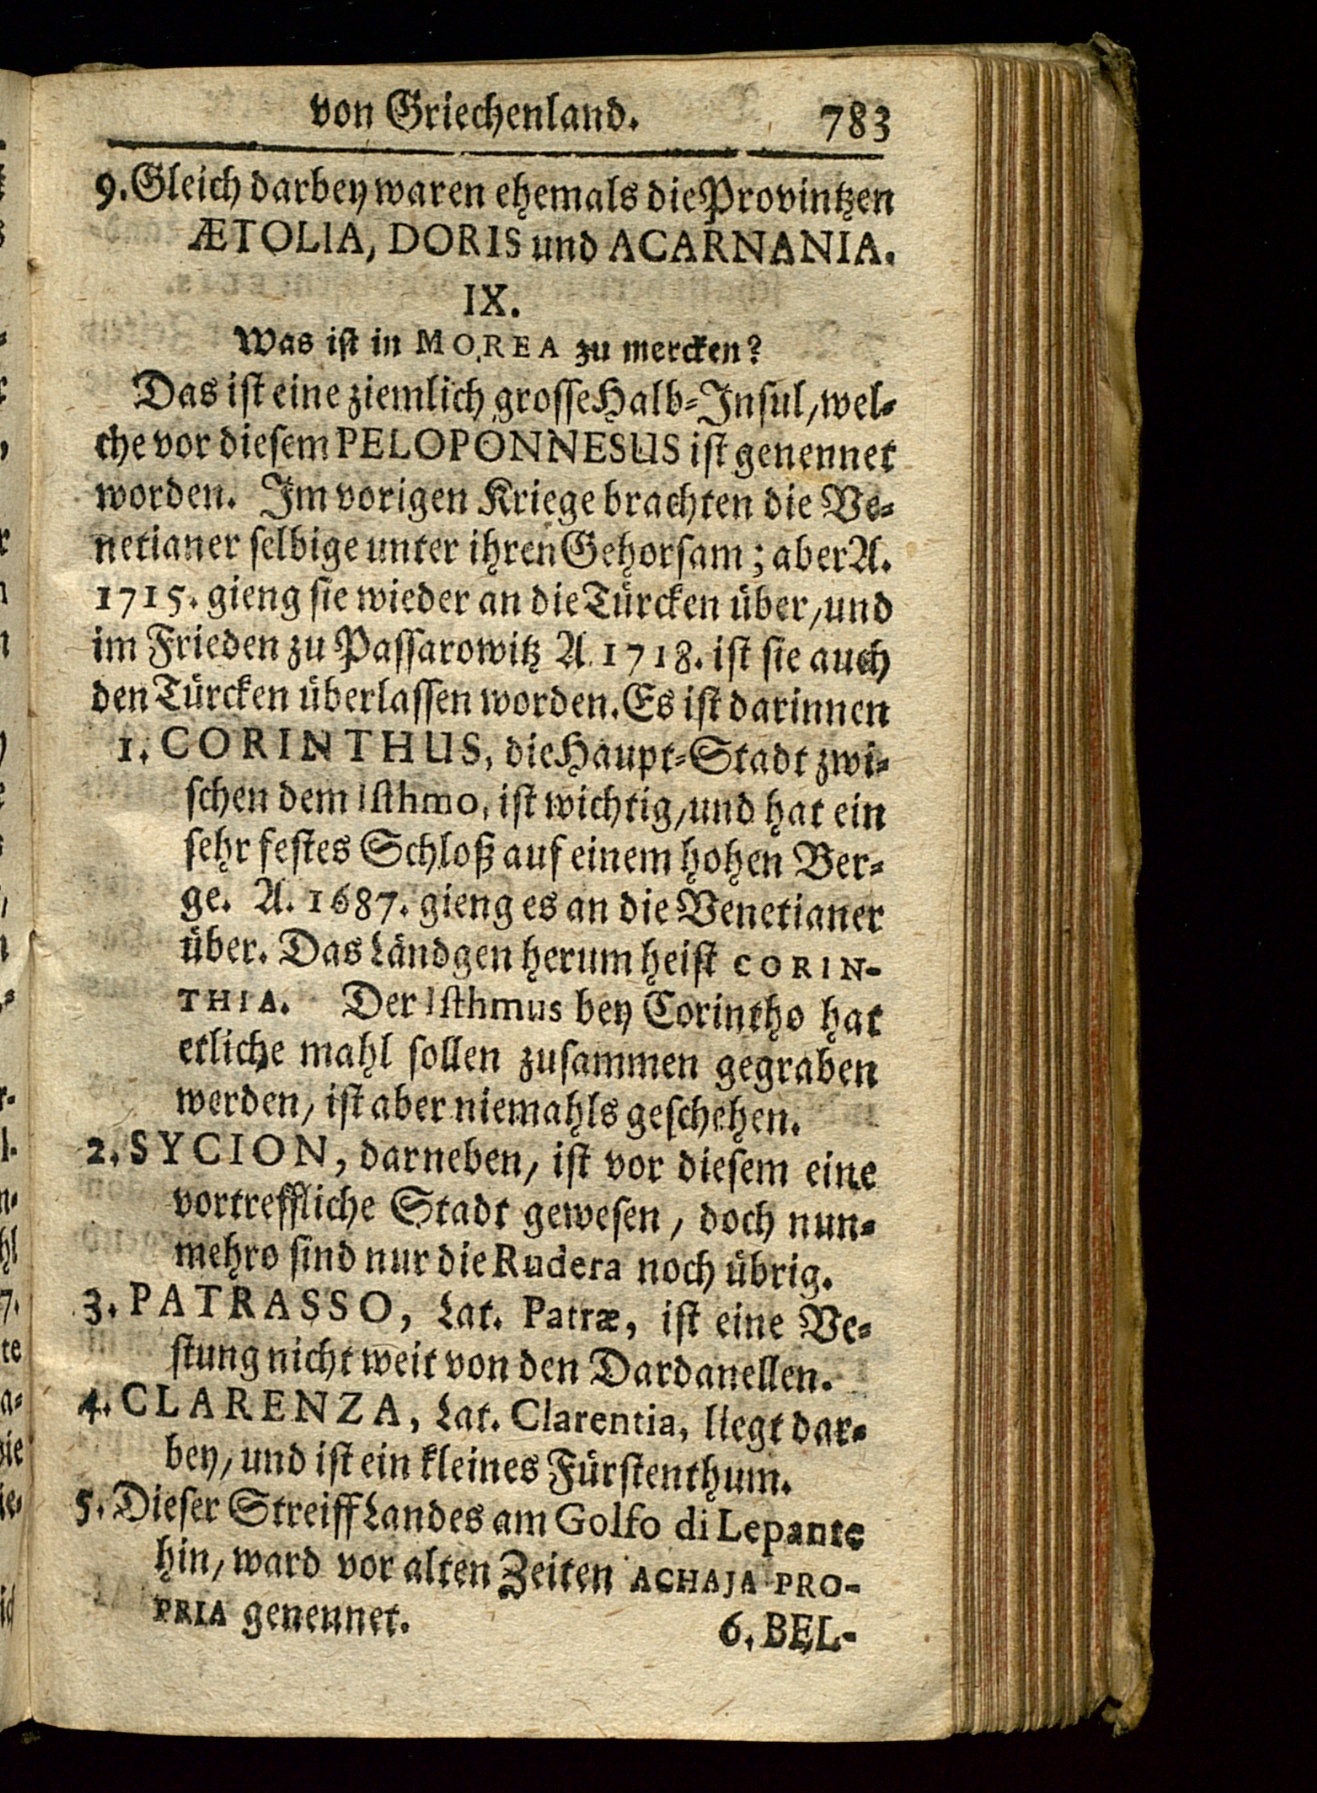 von Griechenland. 783
9. Gleich darbey waren ehemals die Provintzen
ÆTOLIA, DORIS und ACARNANIA.
IX.
Was ist in MOREA zu mercken?
Das ist eine ziemlich grosse Halb-Insul, wel-
che vor diesem PELOPONNESUS ist genennet
worden. Im vorigen Kriege brachten die Ve-
netianer selbige unter ihren Gehorsam; aber A.
1715. gieng sie wieder an die Türcken über, und
im Frieden zu Passarowitz A. 1718. ist sie auch
den Türcken überlassen worden. Es ist darinnen
1. CORINTHUS, die Haupt-Stadt zwi-
schen dem Isthmo, ist wichtig, und hat ein
sehr festes Schloß auf einem hohen Ber-
ge. A. 1687. gieng es an die Venetianer
über. Das Ländgen herum heist CORIN-
THIA. Der Isthmus bey Corintho hat
etliche mahl sollen zusammen gegraben
werden, ist aber niemahls geschehen.
2. SYCION, darneben, ist vor diesem eine
vortreffliche Stadt gewesen, doch nun-
mehro sind nur die Rudera noch übrig.
3. PATRASSO, Lat. Patræ, ist eine Ve-
stung nicht weit von den Dardanellen.
4. CLARENZA, Lat. Clarentia, liegt dar-
bey, und ist ein kleines Fürstenthum.
5. Dieser Streiff Landes am Golfo di Lepante
hin, ward vor alten Zeiten ACHAJA PRO-
PRIA genennet.
6. BEL-